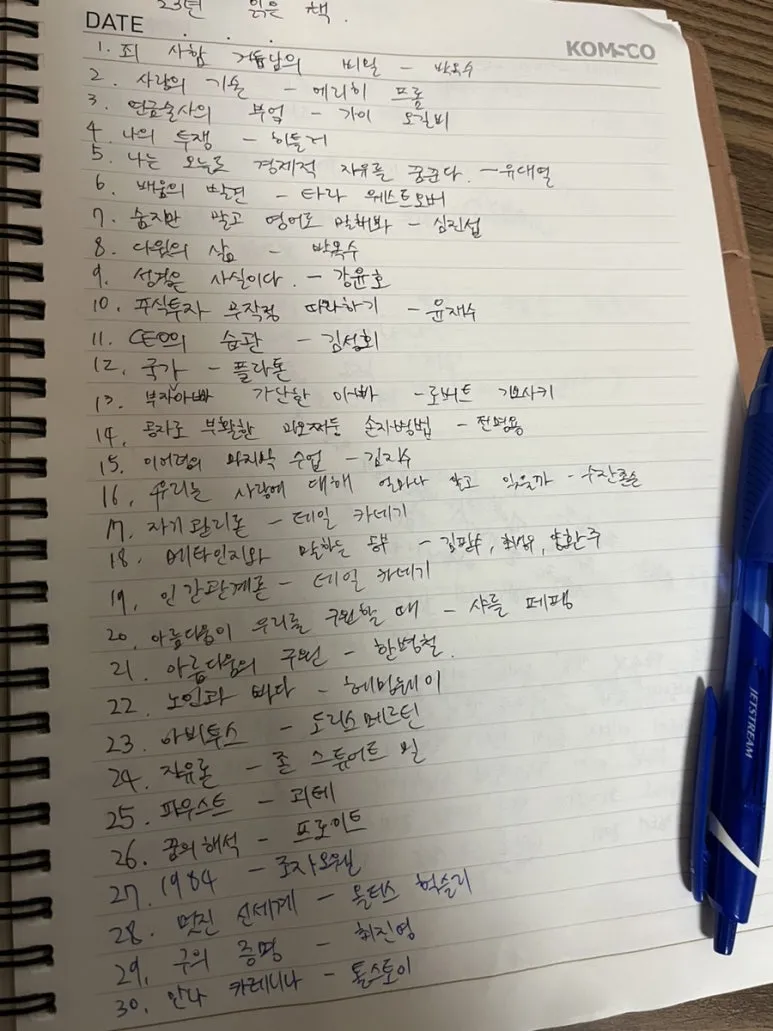 23년 읽은 책.
DATE . . .
KOMSCO
1. 죄 사함 거듭남의 비밀 - 박옥수
2. 사랑의 기술 - 에리히 프롬
3. 연금술사의 부엌 - 가이 오길비
4. 나의 투쟁 - 히틀러
5. 나는 오늘도 경제적 자유를 꿈꾼다. - 유대열
6. 배움의 발견 - 타라 웨스트오버
7. 숨지만 말고 영어로 말해봐 - 심진섭
8. 다윗의 삶 - 박옥수
9. 성경은 사실이다. - 강윤호
10. 주식투자 무작정 따라하기 - 윤재수
11. CEO의 습관 - 김성회
12. 국가 - 플라톤
13. 부자아빠 가난한 아빠 - 로버트 기요사키
14. 공자로 부활한 손자병법 - 전명용
15. 이어령의 마지막 수업 - 김지수
16. 우리는 사랑에 대해 얼마나 알고 있을까 - 수잔존슨
17. 자기관리론 - 데일 카네기
18. 메타인지와 말하는 공부 -
19. 인간관계론 - 데일 카네기
20. 아름다움이 우리를 구원할 때 - 샤를 페팽
21. 아름다움의 구원 - 한병철.
22. 노인과 바다 - 헤밍웨이
23. 아비투스 - 도리스메르틴
24. 자유론 - 존 스튜어트 밀
25. 파우스트 - 괴테
26. 꿈의해석 - 프로이트
27. 1984 - 조지오웰
28. 멋진 신세계 - 올더스 헉슬리
29. 구의 증명 - 최진영
30. 안나 카레니나 - 톨스토이
JETSTREAM